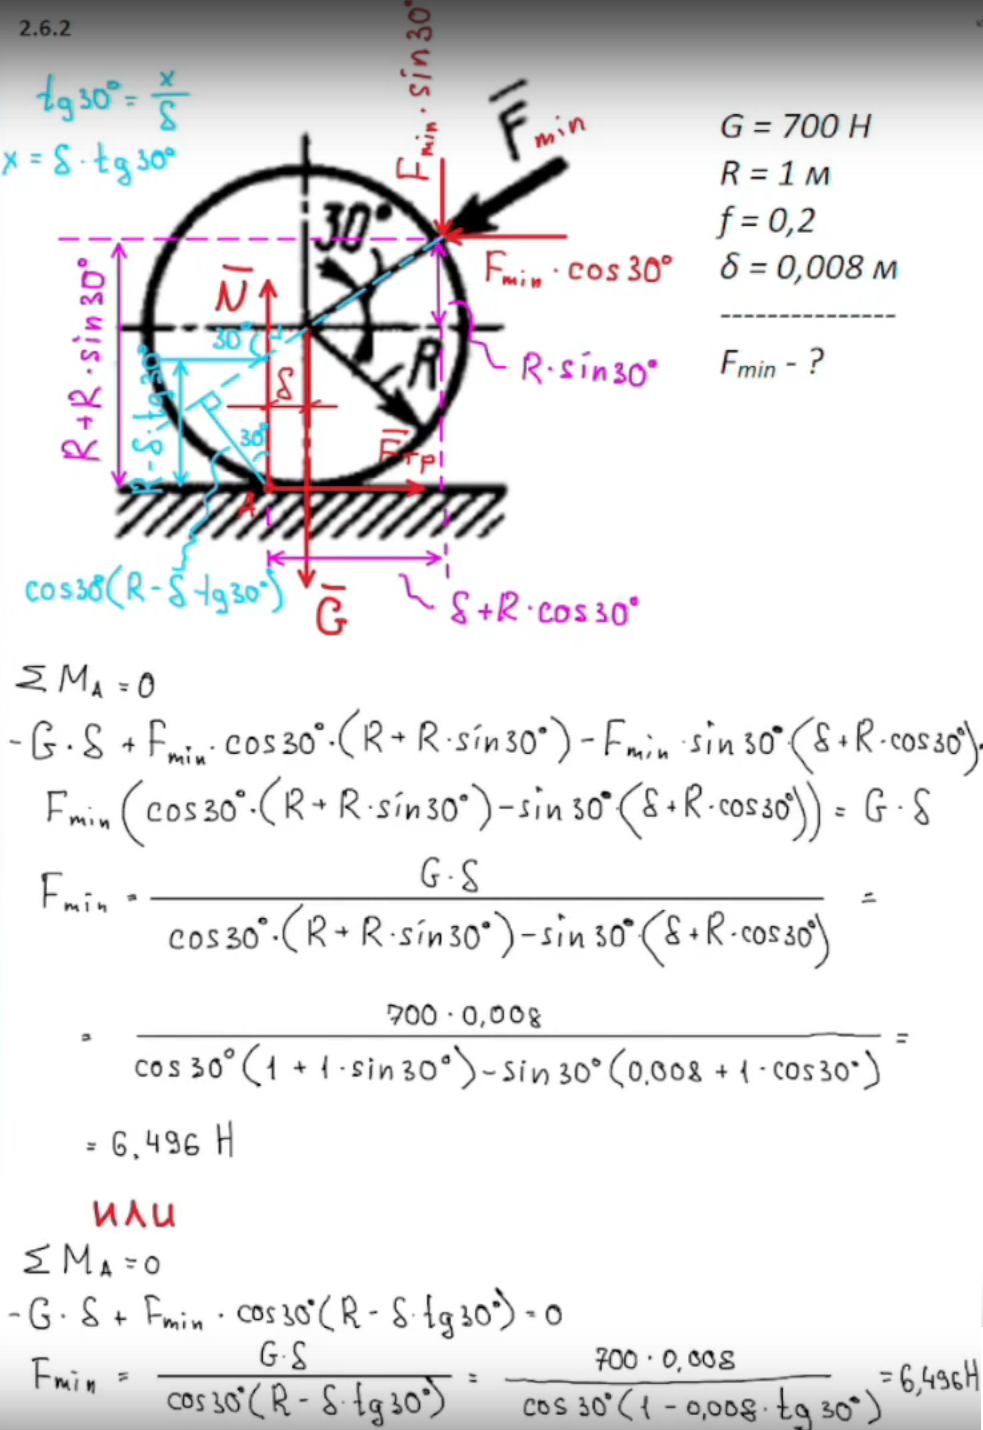 2.6.2
tg30° = x/δ
x = δ·tg30°
F̅min
Fmin·sin30°
G = 700 Н
R = 1 м
f = 0,2
δ = 0,008 м
---------------
Fmin - ?
30°
Fmin·cos30°
N̅
R+R·sin30°
30°
R
R·sin30°
δ
R-δ·tg30°
30°
F̅тр
A
cos30°(R-δ·tg30°)
G̅
δ+R·cos30°
ΣMA = 0
-G·δ + Fmin·cos30°·(R+R·sin30°) - Fmin·sin30°·(δ+R·cos30°)
Fmin(cos30°·(R+R·sin30°)-sin30°·(δ+R·cos30°)) = G·δ
Fmin = G·δ / cos30°·(R+R·sin30°)-sin30°·(δ+R·cos30°) =
= 700·0,008 / cos30°(1+1·sin30°)-sin30°(0,008+1·cos30°) =
= 6,496 Н
или
ΣMA = 0
-G·δ + Fmin·cos30°(R-δ·tg30°) = 0
Fmin = G·δ / cos30°(R-δ·tg30°) = 700·0,008 / cos30°(1-0,008·tg30°) = 6,496Н